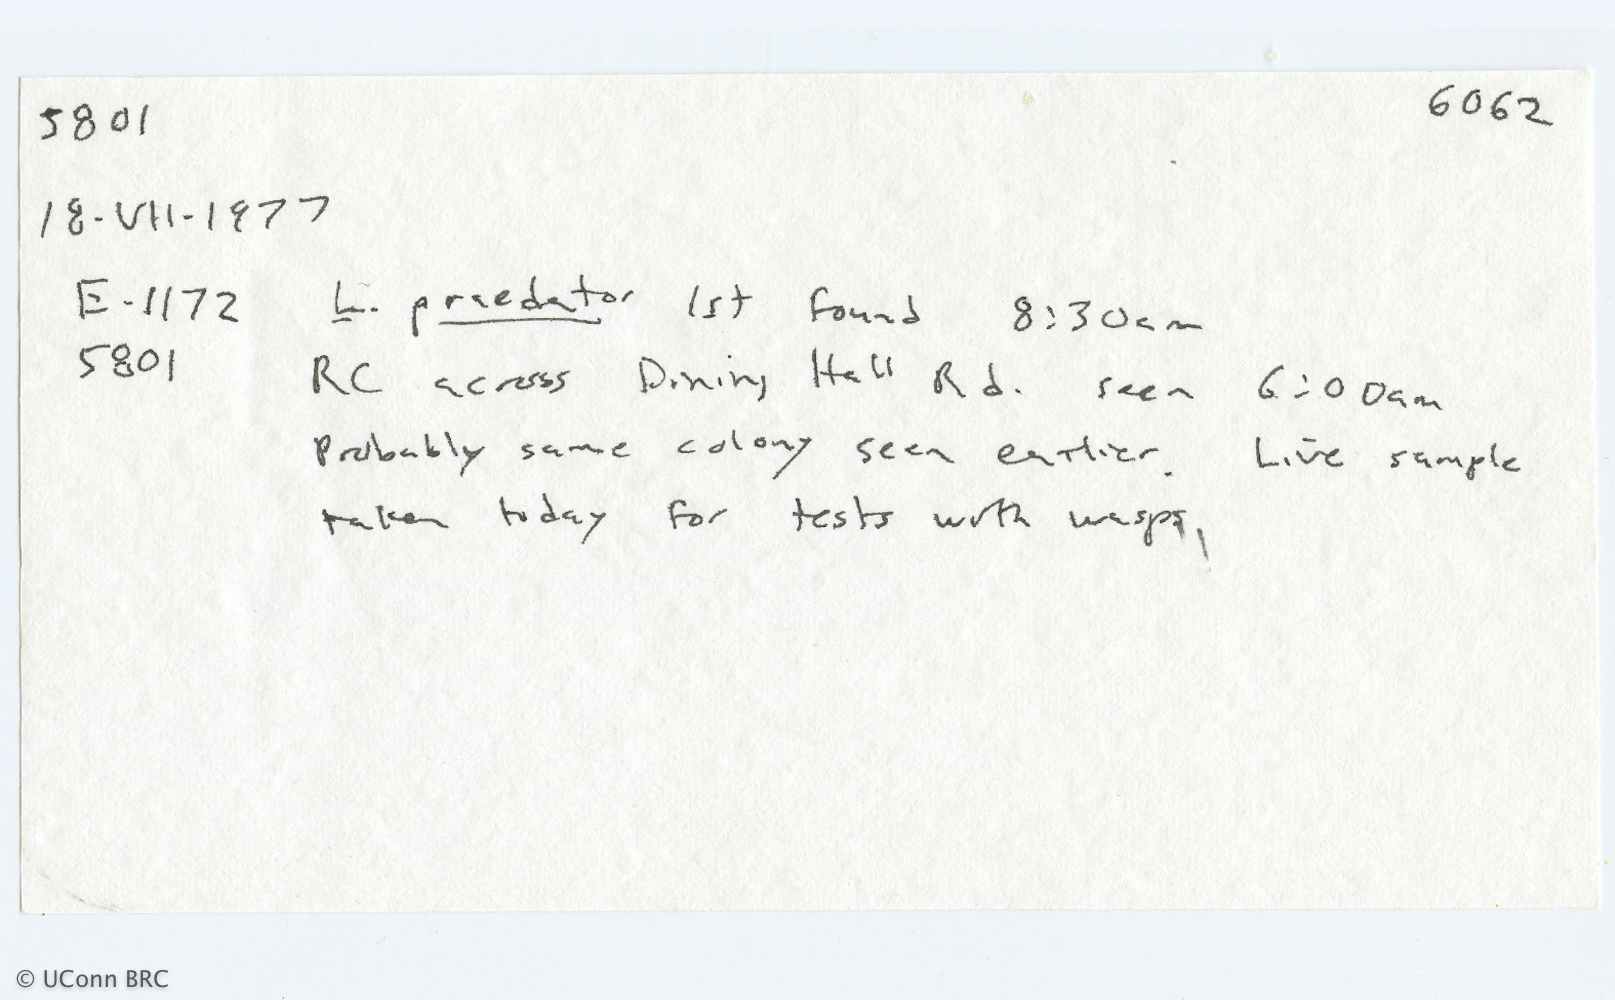 5801 6062
18-VII-1977
E-1172 L. praedator 1st found 8:30am
5801 RC across Dining Hall Rd. seen 6:00am
Probably same colony seen earlier. Live sample
taken today for tests with wasps.
© UConn BRC